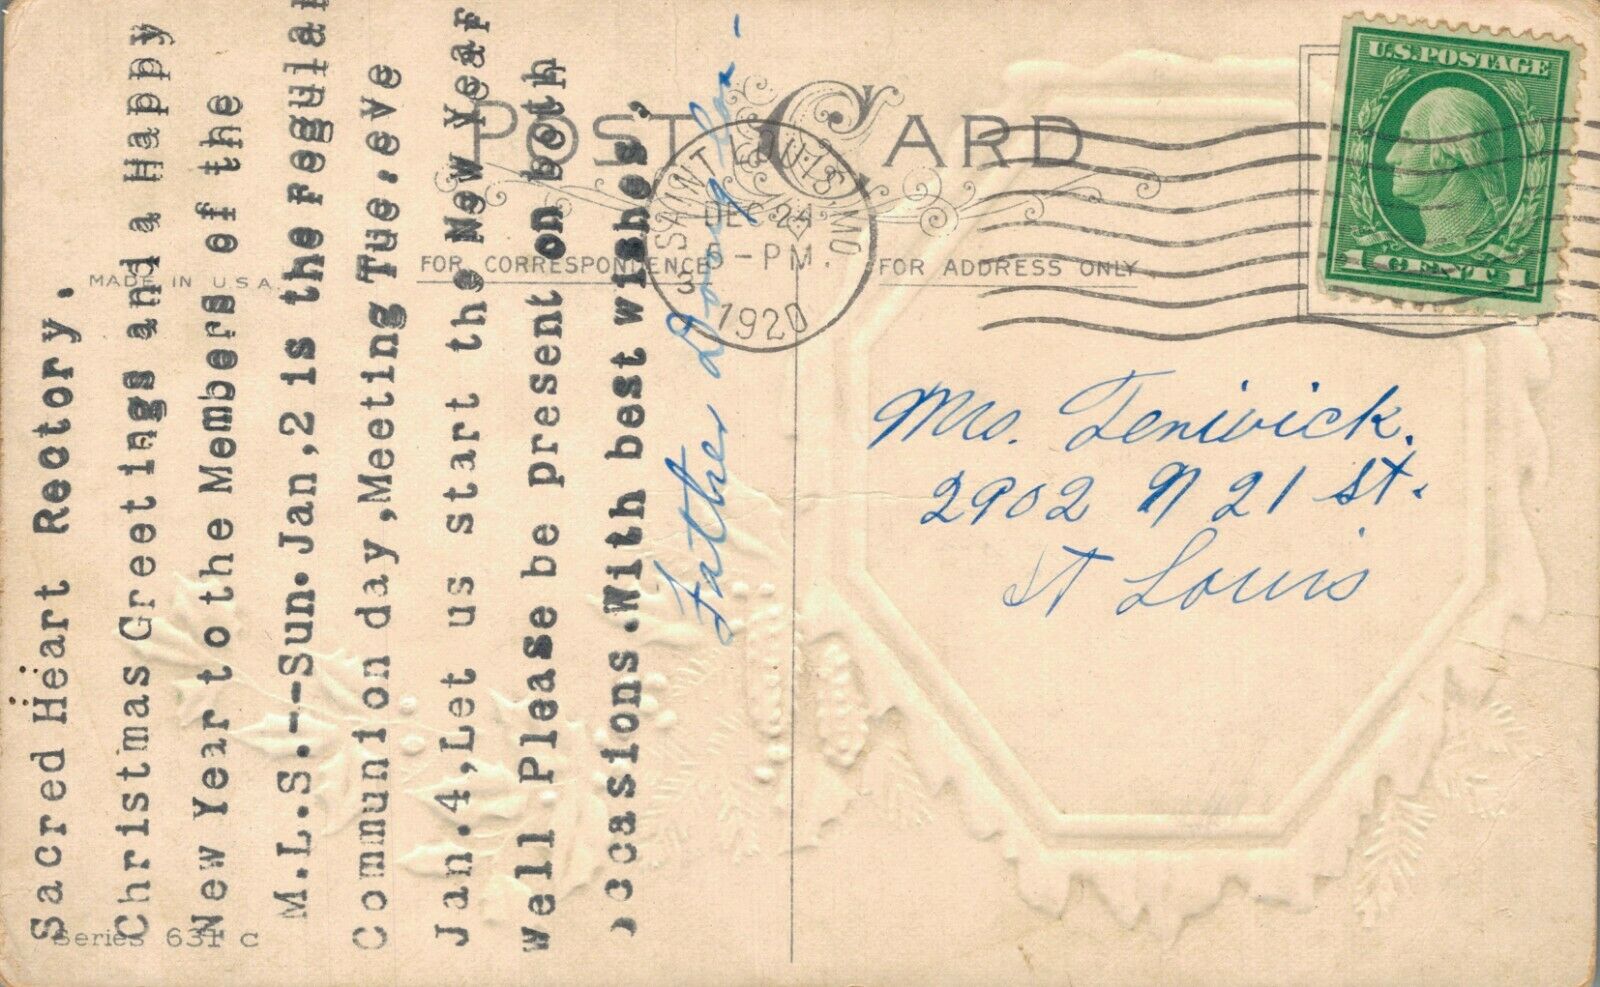 Sacred Heart Rectory.
Christmas Greetings and a Happy
New Year to the Members of the
M.L.S.--Sun.Jan,2 is the regular
Communion day,Meeting Tue.eve
Jan.4,Let us start the New Year
well Please be present on both
occasions.With best wishes,
Father
POST CARD
MADE IN U.S.A.
FOR CORRESPONDENCE
FOR ADDRESS ONLY
SAINT LOUIS, MO.
DEC 24
-PM.
1920
U.S. POSTAGE
1 CENT 1
Mrs. Fenwick.
2902 N 21 St.
St Louis
Series 631 C